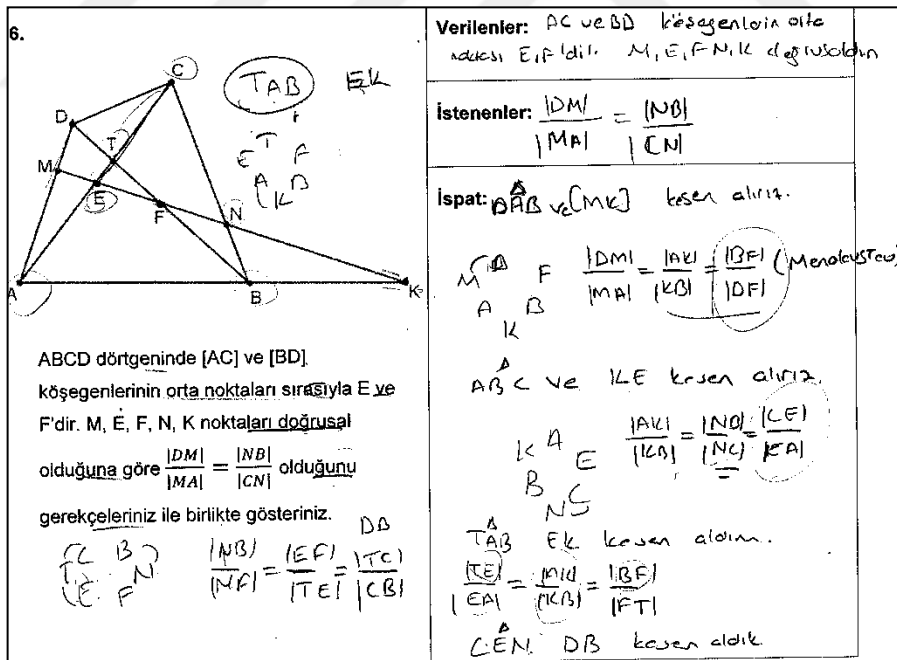 6.
C
D
T
M
E
F
N
A
B
K
TAB EK
T
E F
A B
K
ABCD dörtgeninde [AC] ve [BD]
köşegenlerinin orta noktaları sırasıyla E ve
F'dir. M, E, F, N, K noktaları doğrusal
olduğuna göre |DM|/|MA| = |NB|/|CN| olduğunu
gerekçeleriniz ile birlikte gösteriniz.
C B
T N
E F
DB
|NB|/|NF| = |EF|/|TE| = |TC|/|CB|
Verilenler: AC ve BD köşegenlerin orta
noktası E,F'dir. M, E, F, N, K doğrusaldır
İstenenler: |DM|/|MA| = |NB|/|CN|
İspat: DAB ve [MK] kesen alırız.
M D F
A B
K
|DM|/|MA| = |AK|/|KB| = |BF|/|DF| (Menelaus Teo)
ABC ve KE kesen alırız.
K A E
B C
N
|AK|/|KB| = |NB|/|NC| = |CE|/|EA|
TAB EK kesen aldım.
|TE|/|EA| = |AK|/|KB| = |BF|/|FT|
CEN DB kesen aldık